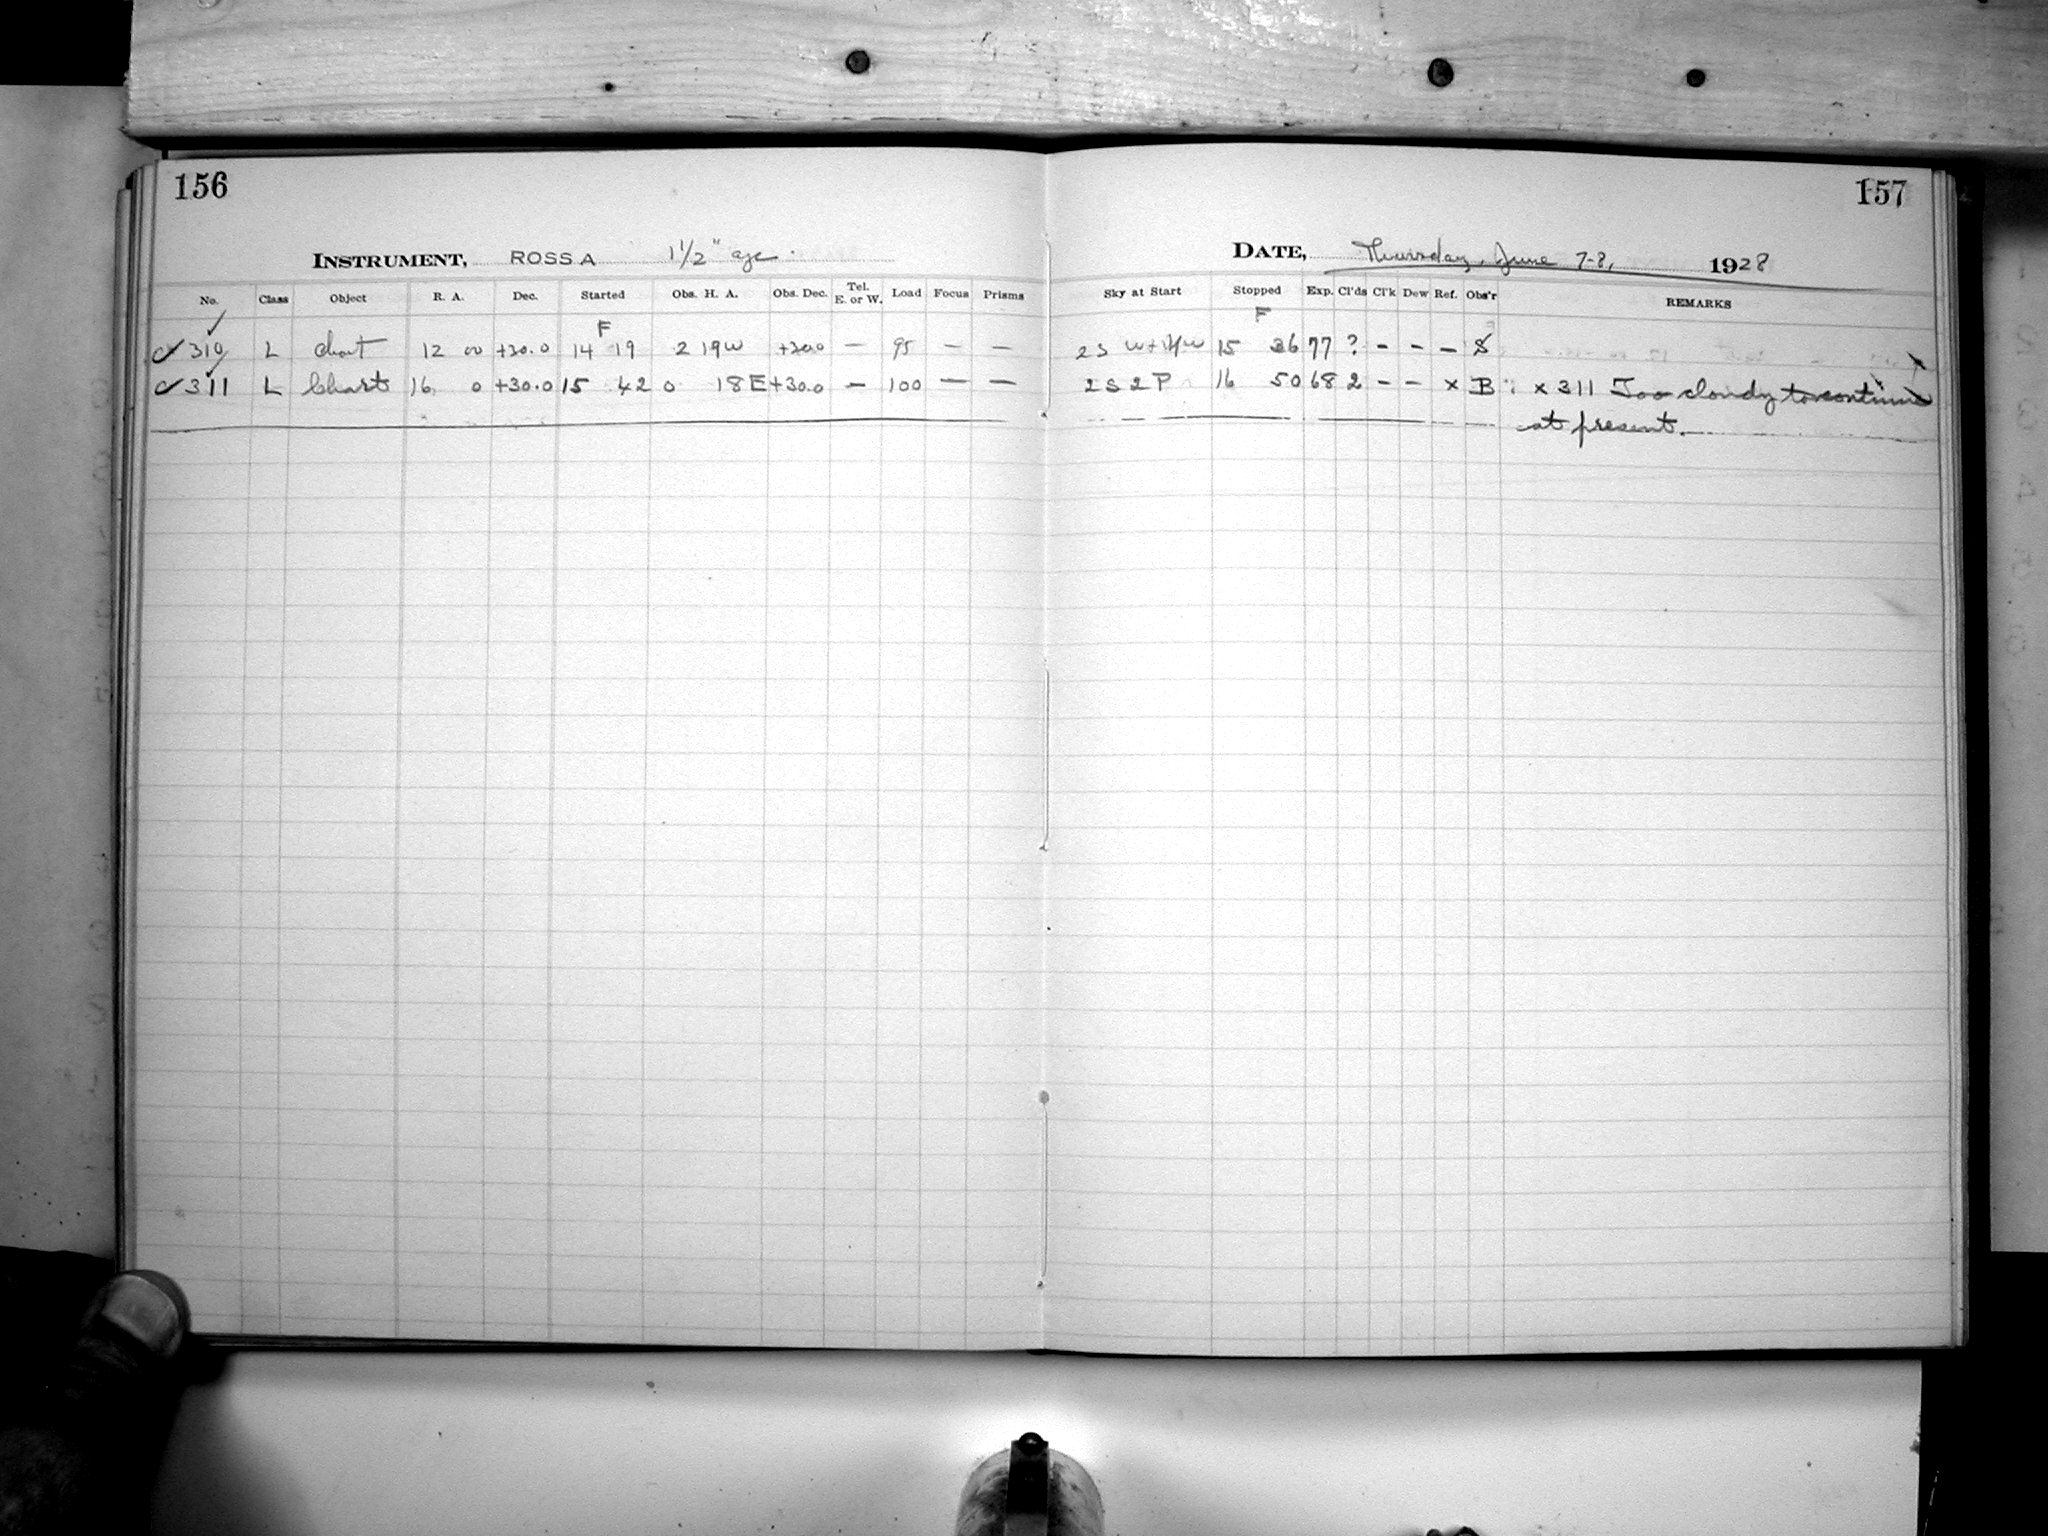 156
157
INSTRUMENT, ROSS A 1 1/2"
DATE, Thursday, June 7-8, 1928
No. Class Object R. A. Dec. Started Obs. H. A. Obs. Dec. Tel. E. or W. Load Focus Prisms Sky at Start Stopped Exp. Cl'ds Cl'k Dew Ref. Obs'r REMARKS
F F
✓ 310 L Chart 12 00 +30.0 14 19 2 19W +30.0 — 95 — — 2 S 15 36 77 ? - - - S
✓ 311 L Chart 16 0 +30.0 15 42 0 18E +30.0 — 100 — — 2 S 2 P 16 50 68 2 - - x B x 311 Too cloudy to continue
at present.